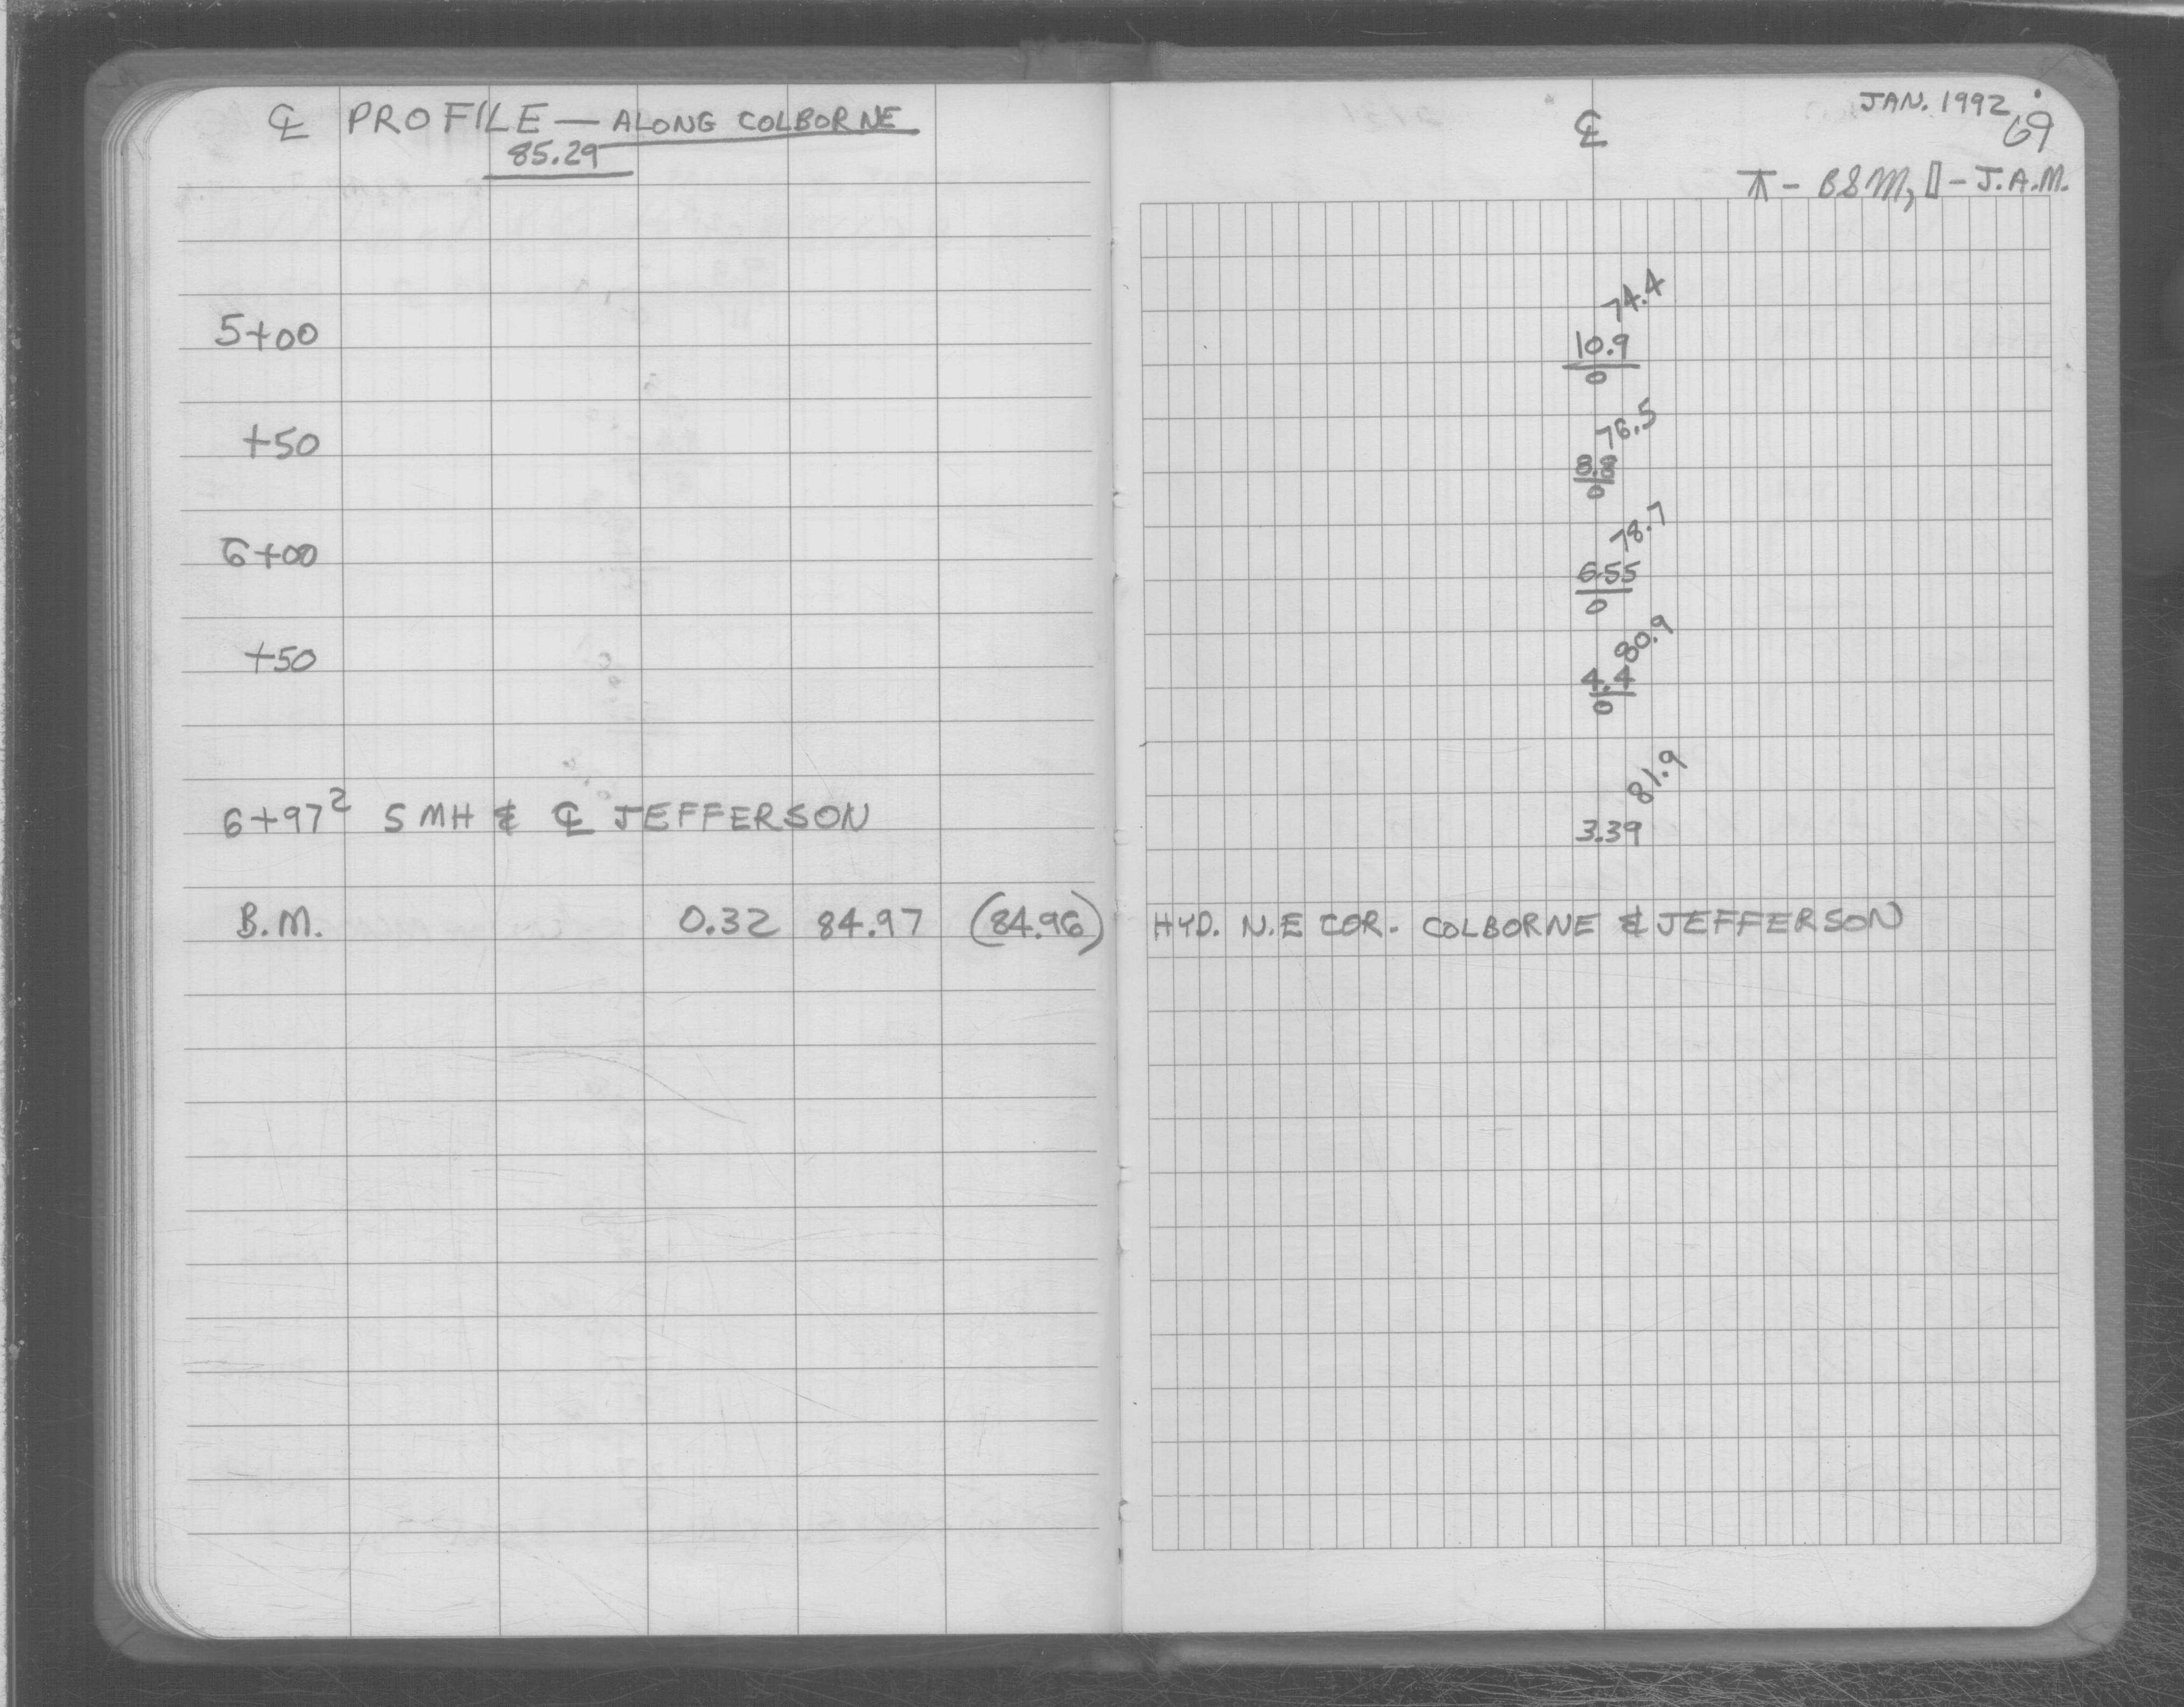 ℄ PROFILE — ALONG COLBORNE
85.29
5+00
+50
6+00
+50
6+97² SMH & ℄ JEFFERSON
B.M. 0.32 84.97 (84.96)
JAN. 1992
69
℄
⊼ - B&M, ▯ - J.A.M.
74.4
10.9
0
76.5
8.8
0
78.7
6.55
0
80.9
4.4
0
81.9
3.39
HYD. N.E COR. COLBORNE & JEFFERSON